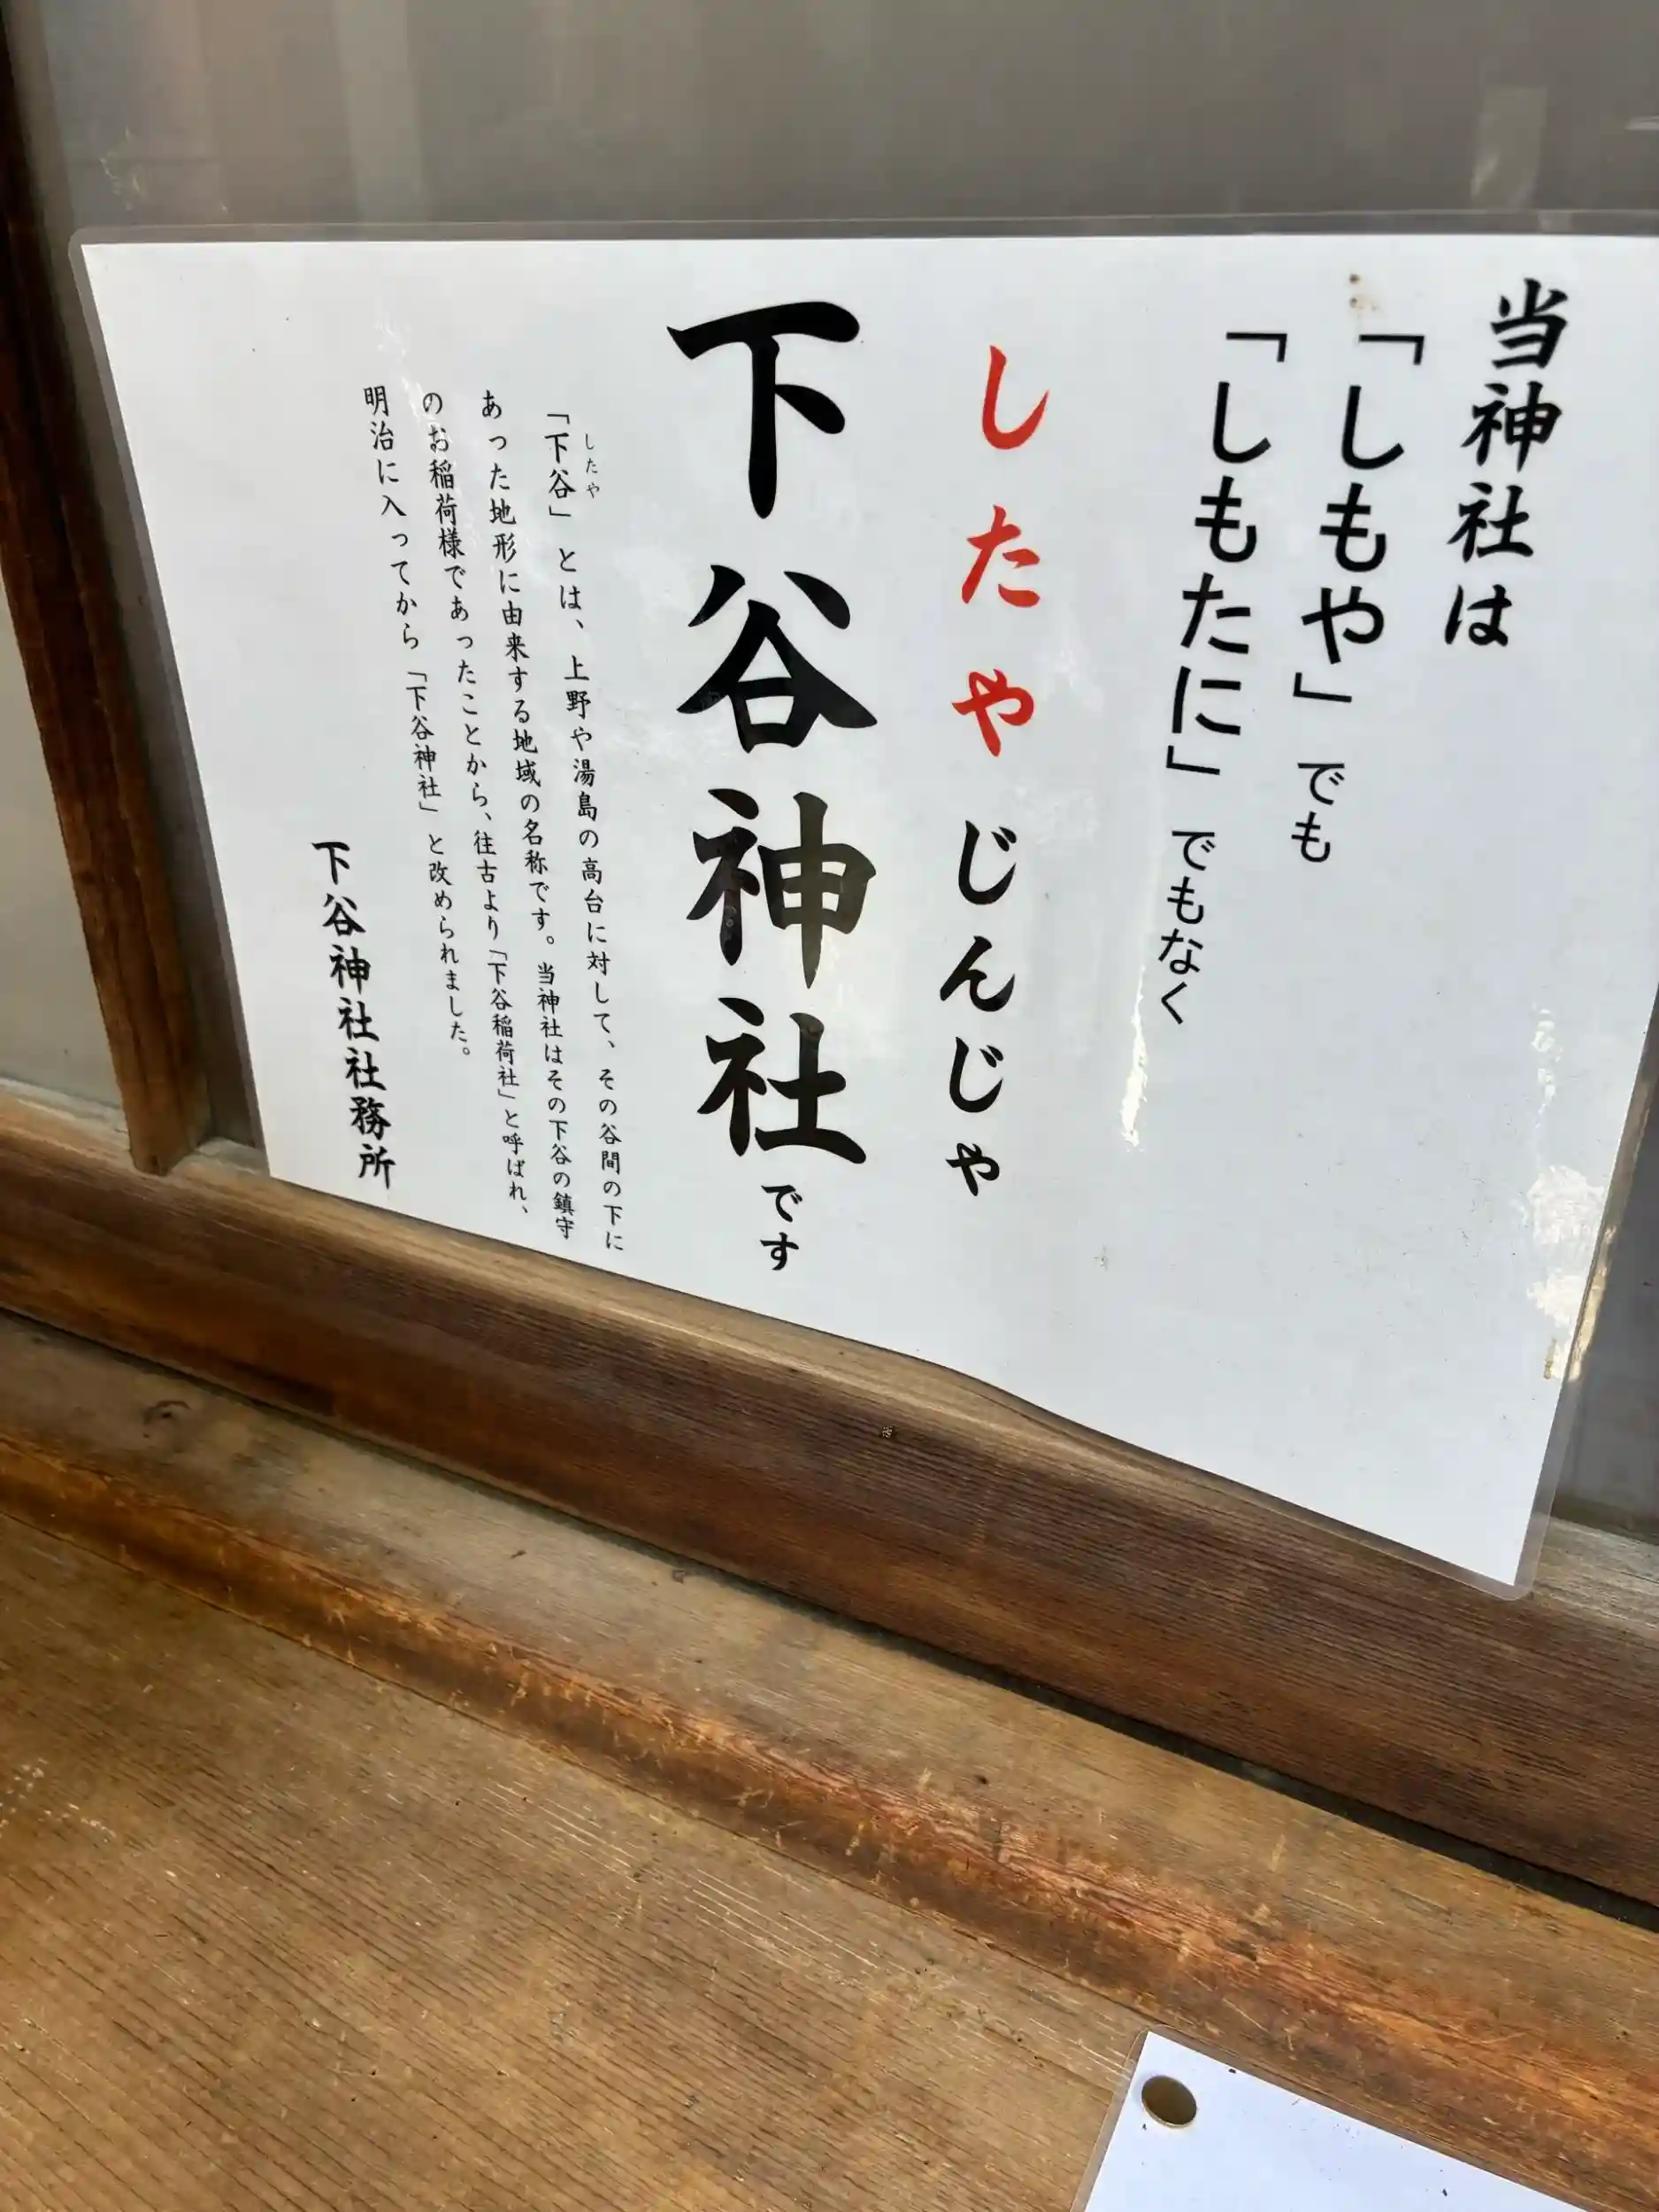 当神社は
「しもや」でも
「しもたに」でもなく
したやじんじゃ
下谷神社です
したや
「下谷」とは、上野や湯島の高台に対して、その谷間の下に
あった地形に由来する地域の名称です。当神社はその下谷の鎮守
のお稲荷様であったことから、往古より「下谷稲荷社」と呼ばれ、
明治に入ってから「下谷神社」と改められました。
下谷神社社務所